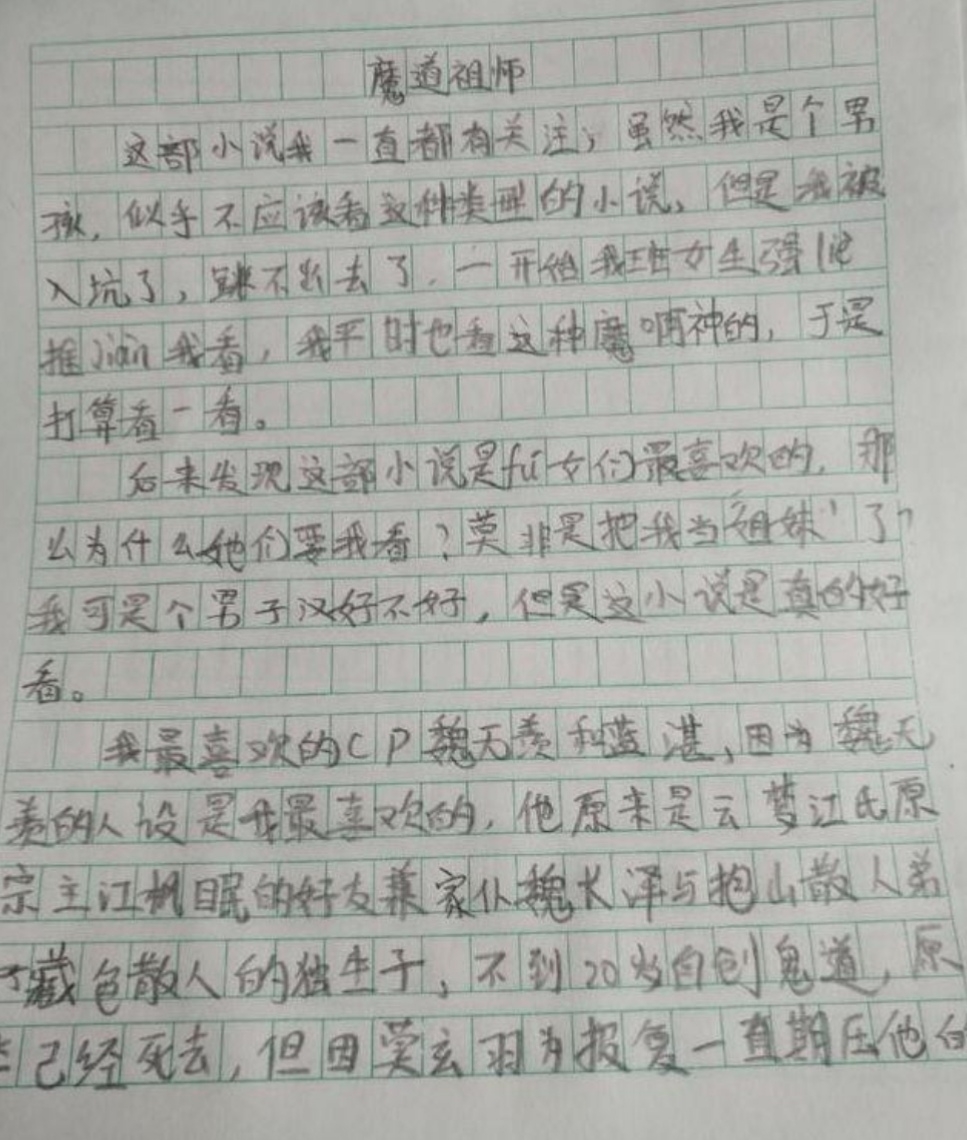 魔道祖师
这部小说我一直都有关注，虽然我是个男
孩，似乎不应该看这种类型的小说，但是我被
入坑了，跳不出去了．一开始我班女生强lie
推jiàn我看，我平时也看这种魔啊神的，于是
打算看一看。
后来发现这部小说是fǔ女们最喜欢的，那
么为什么她们要我看？莫非是把我当‘姐妹’了？
我可是个男子汉好不好，但是这小说是真的好
看。
我最喜欢的CP魏无羡和蓝湛，因为魏无
羡的人设是我最喜欢的，他原来是云梦江氏原
宗主江枫眠的好友兼家仆魏长泽与抱山散人弟
子藏色散人的独生子，不到20岁自创鬼道，原
已经死去，但因莫玄羽为报复一直期压他的